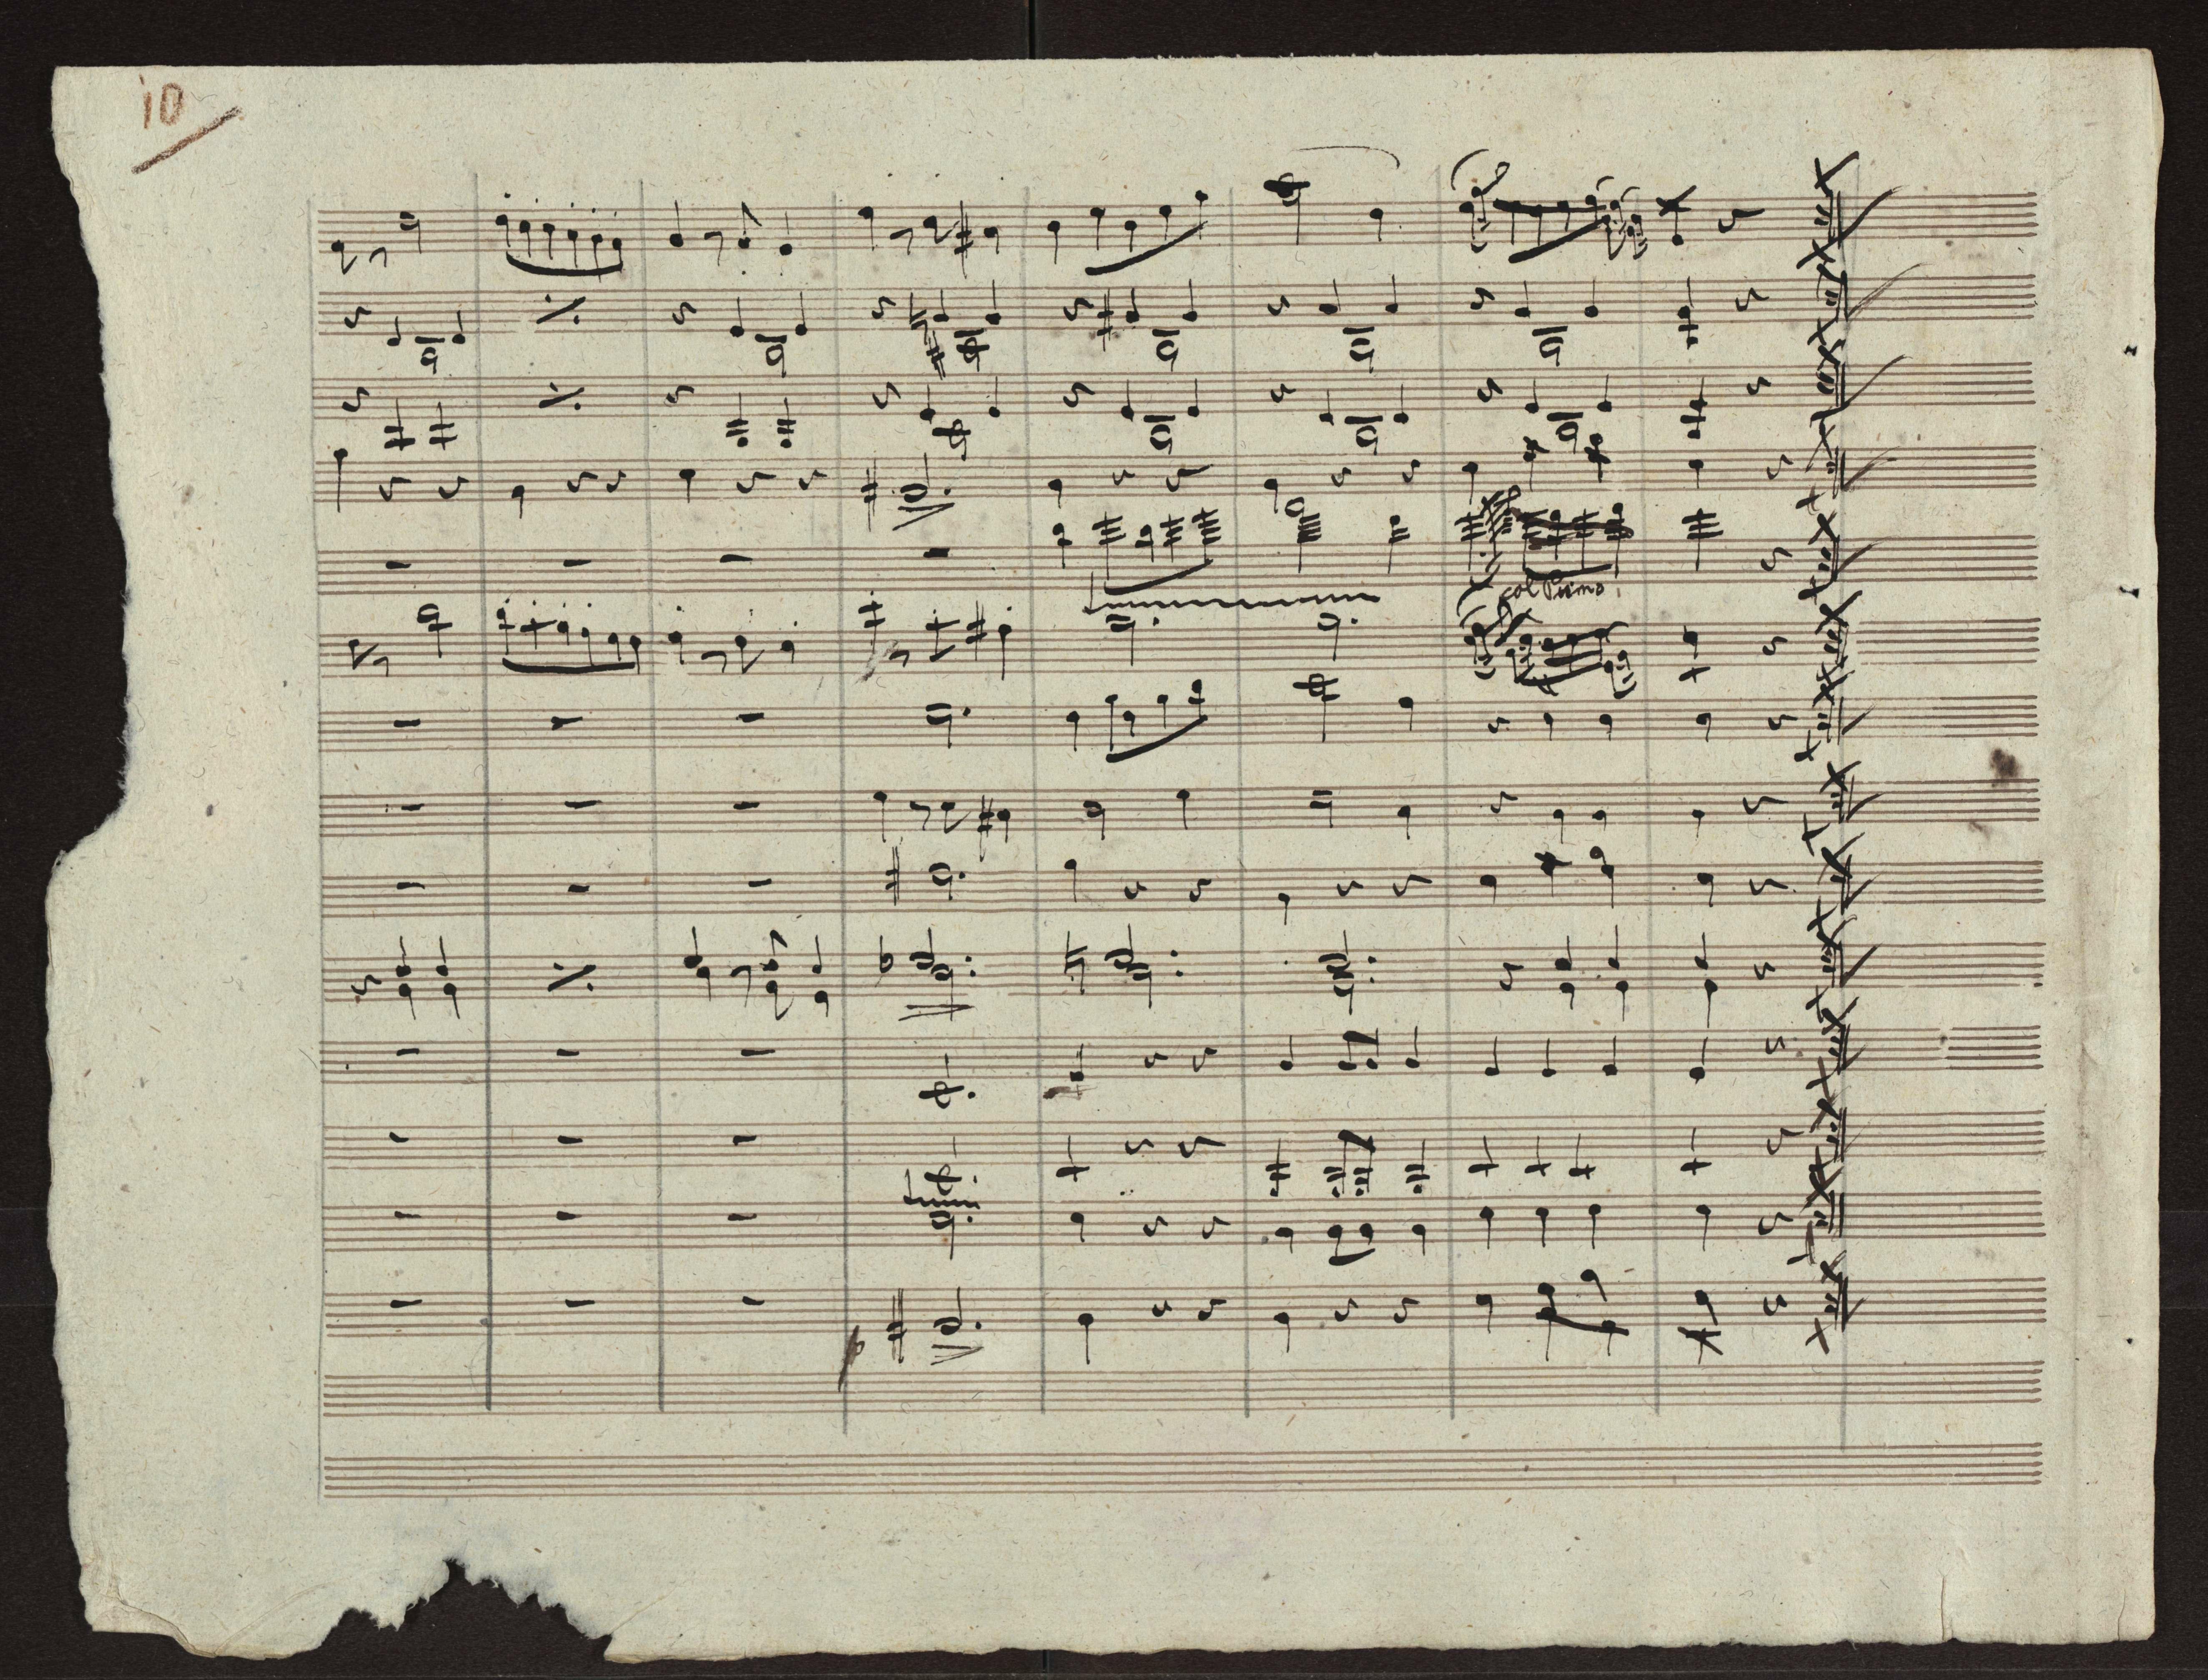 10
col Primo
p